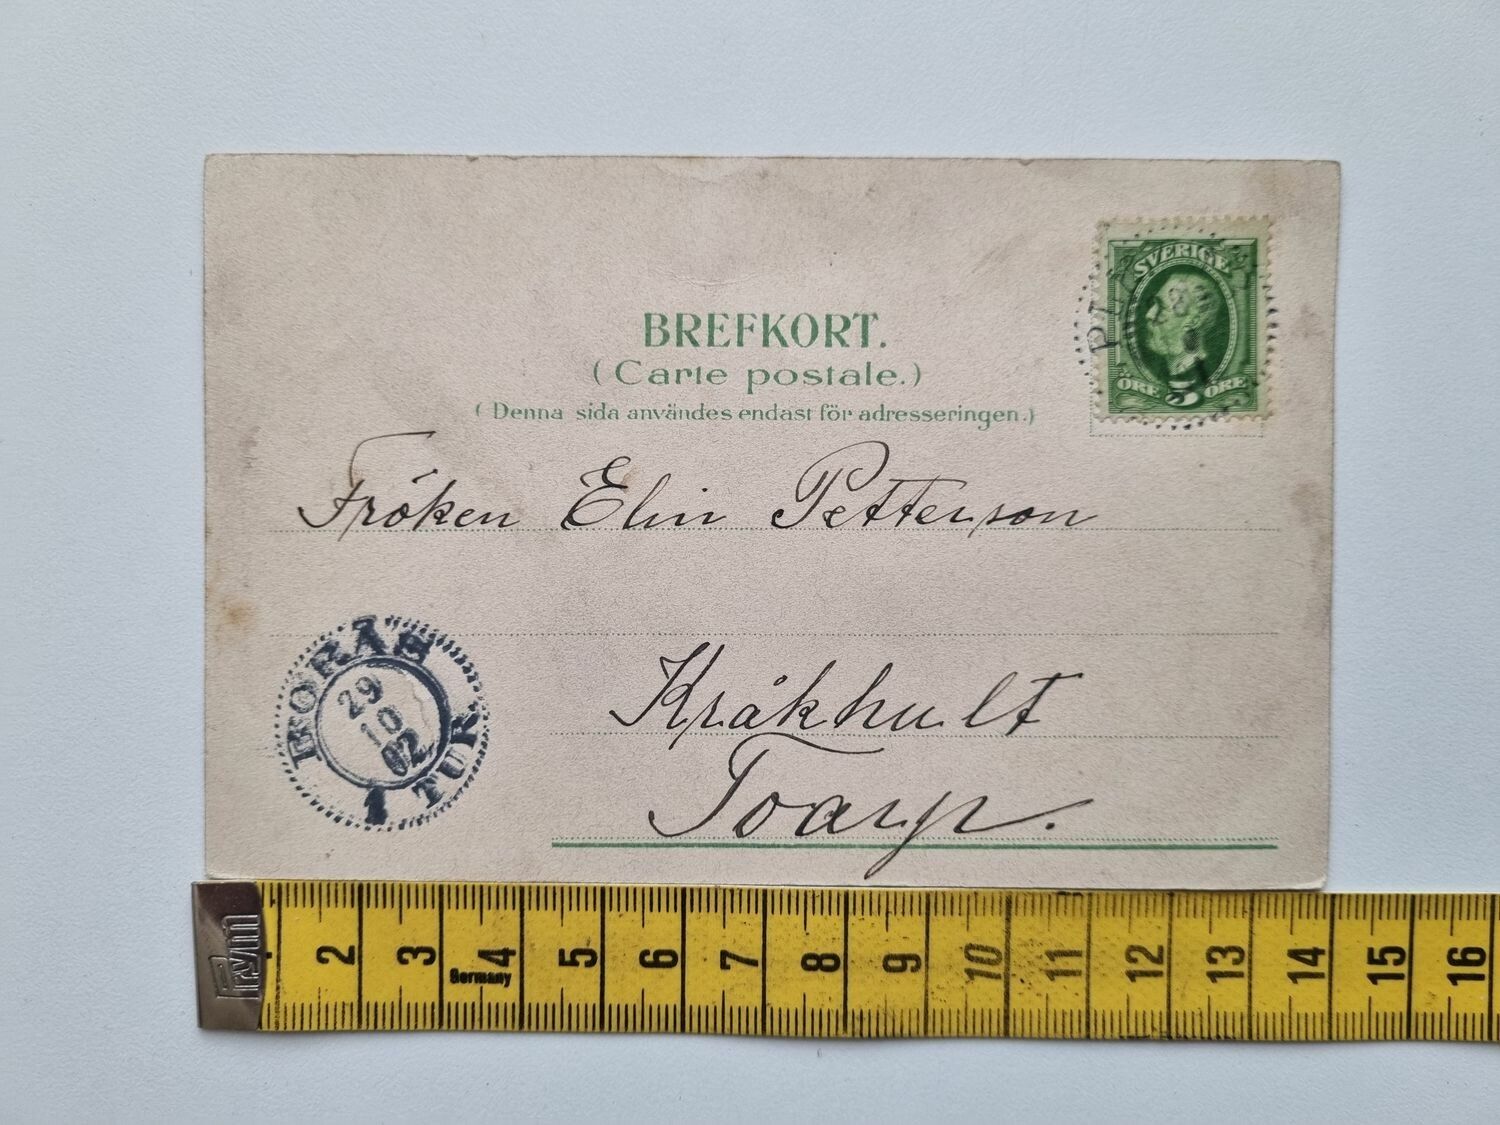 BREFKORT.
(Carte postale.)
(Denna sida användes endast för adresseringen.)
SVERIGE
5
ÖRE ÖRE
Fröken Elin Petterson
Kråkhult
Toarp.
BORÅS
29
10
02
1 TUR.
Prym
2 3 4 5 6 7 8 9 10 11 12 13 14 15 16
Germany